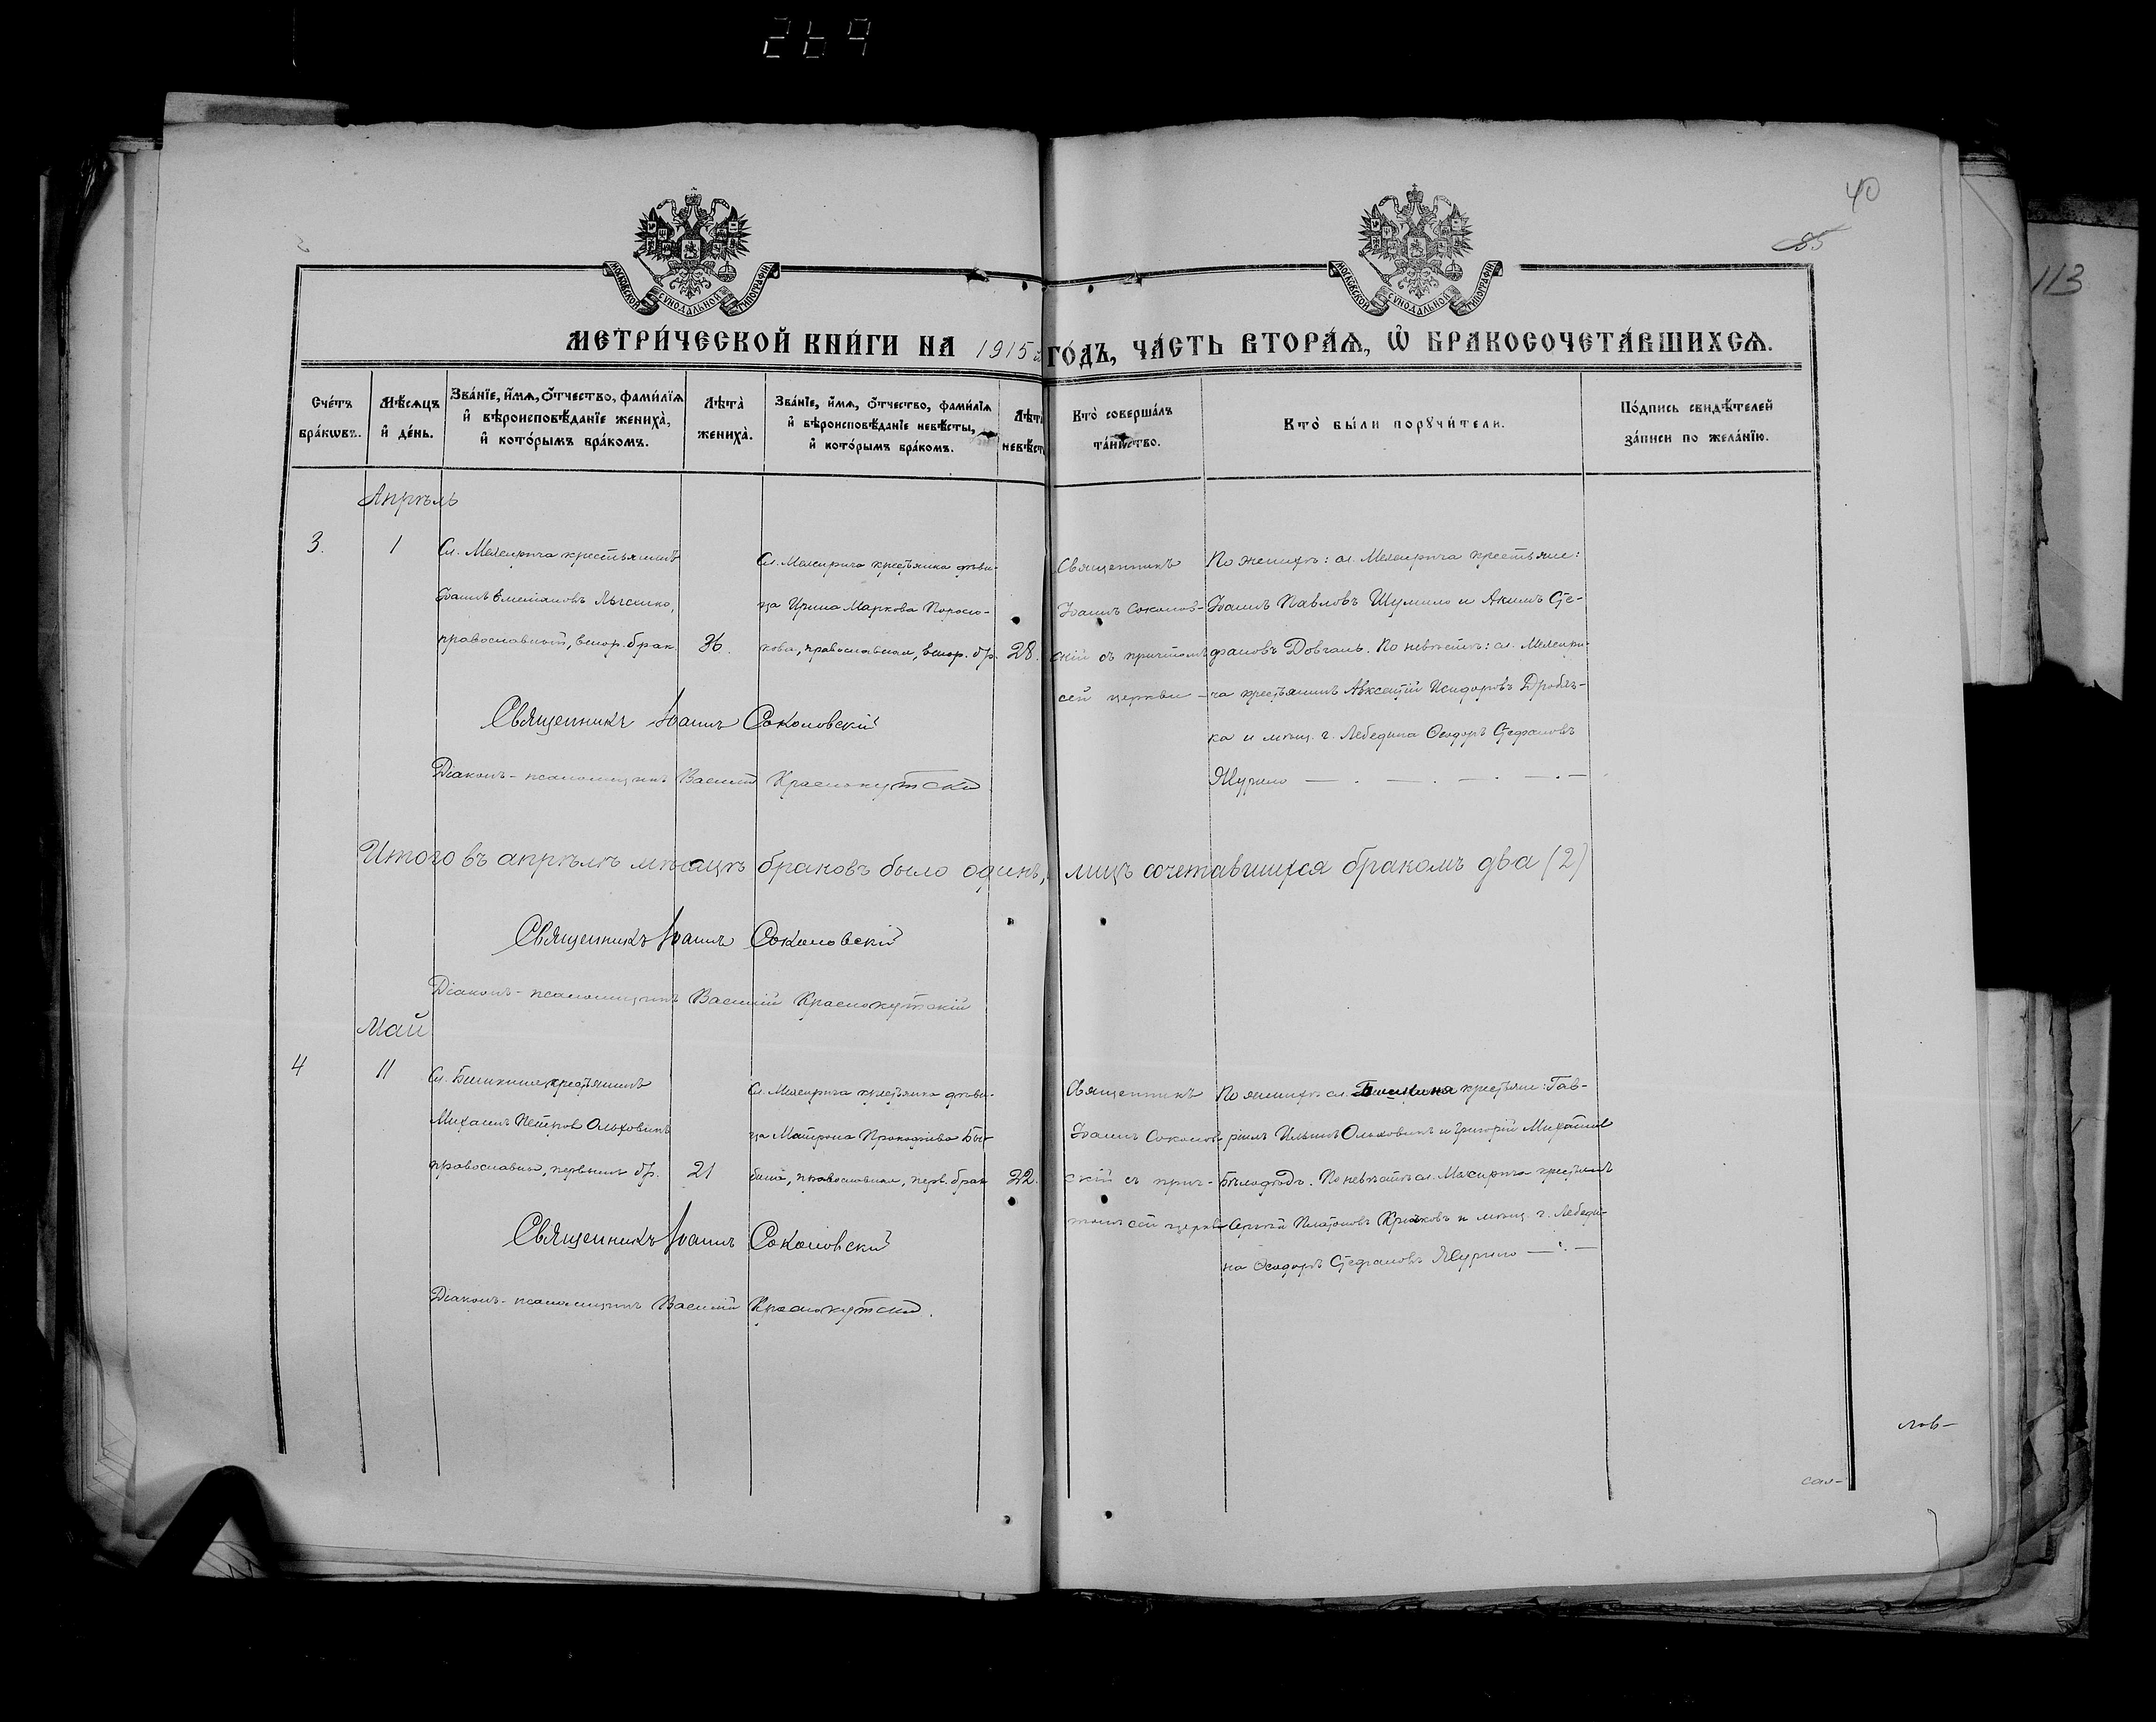 269
40
85
113
МОСКОВСКОЙ СѴНОДАЛЬНОЙ ТИПОГРАФІИ
МОСКОВСКОЙ СѴНОДАЛЬНОЙ ТИПОГРАФІИ
МЕТРИ́ЧЕСКОЙ КНИ́ГИ НА 1915 й ГО́ДЪ, ЧА́СТЬ ВТОРА́Ѧ, Ѽ БРАКОСОЧЕТА́ВШИХСѦ.
Сче́тъ бра́кѡвъ.
Мѣ́сѧцъ и҆ де́нь.
Зва́нїе, и҆́мѧ, о҆́тчество, фами́лїѧ
и҆ вѣроисповѣ́данїе жениха̀,
и҆ кото́рымъ бра́комъ.
Лѣ́та̀ жениха̀.
Зва́нїе, и҆́мѧ, о҆́тчество, фами́лїѧ
и҆ вѣроисповѣ́данїе невѣ́сты,
и҆ кото́рымъ бра́комъ.
Лѣ́та невѣ́ст
Кто̀ соверша́лъ та́инство.
Кто̀ бы́ли порꙋчи́тели.
По́дпись свидѣ́телей
за́писи по жела́нїю.
Апрѣль
3.
1
Сл. Межирича крестьянинъ
Іоаннъ Емеліановъ
православный, втор. брак.
36.
Сл. Межирича крестьянка дѣви-
ца Ирина Маркова
кова, православная, втор. бр.
28.
Священникъ
Іоаннъ Соколов-
скій съ причтомъ
сей церкви
По женихѣ: сл. Межирича крестьяне:
Іоаннъ Павловъ Шумило и Акимъ Сте-
фановъ Довгаль. По невѣстѣ: сл. Межири-
ча крестьянинъ Авксентій Исидоровъ Дробяз-
ка и мѣщ. г. Лебедина Ѳеодоръ Стефановъ
Журило
Священникъ Іоаннъ Соколовскій
Діаконъ-псаломщикъ Василій Краснокутскій
Итого въ апрѣлѣ мѣсяцѣ браковъ было одинъ, лицъ сочетавшихся бракомъ два (2)
Священникъ Іоаннъ Соколовскій
Діаконъ-псаломщикъ Василій Краснокутскій
Май
4
11
Сл. Бишкиня крестьянинъ
Михаилъ Петровъ Ольховикъ
православный, первымъ бр.
21
Сл. Межирича крестьянка дѣви-
ца Матрона Прокофіева
православная, перв. брак
22.
Священникъ
Іоаннъ Соколов-
скій съ прич-
томъ сей церкви
По женихѣ сл. Бишкиня крестьяне: Гав-
ріилъ Ильинъ Ольховикъ и Григорій Михайловъ
Бѣлодѣдъ. По невѣстѣ сл. Межирича крестьянинъ
Сергѣй Платоновъ Крюковъ и мѣщ. г. Лебеди-
на Ѳеодоръ Стефановъ Журило
Священникъ Іоаннъ Соколовскій
Діаконъ-псаломщикъ Василій Краснокутскій.
лов-
сал-